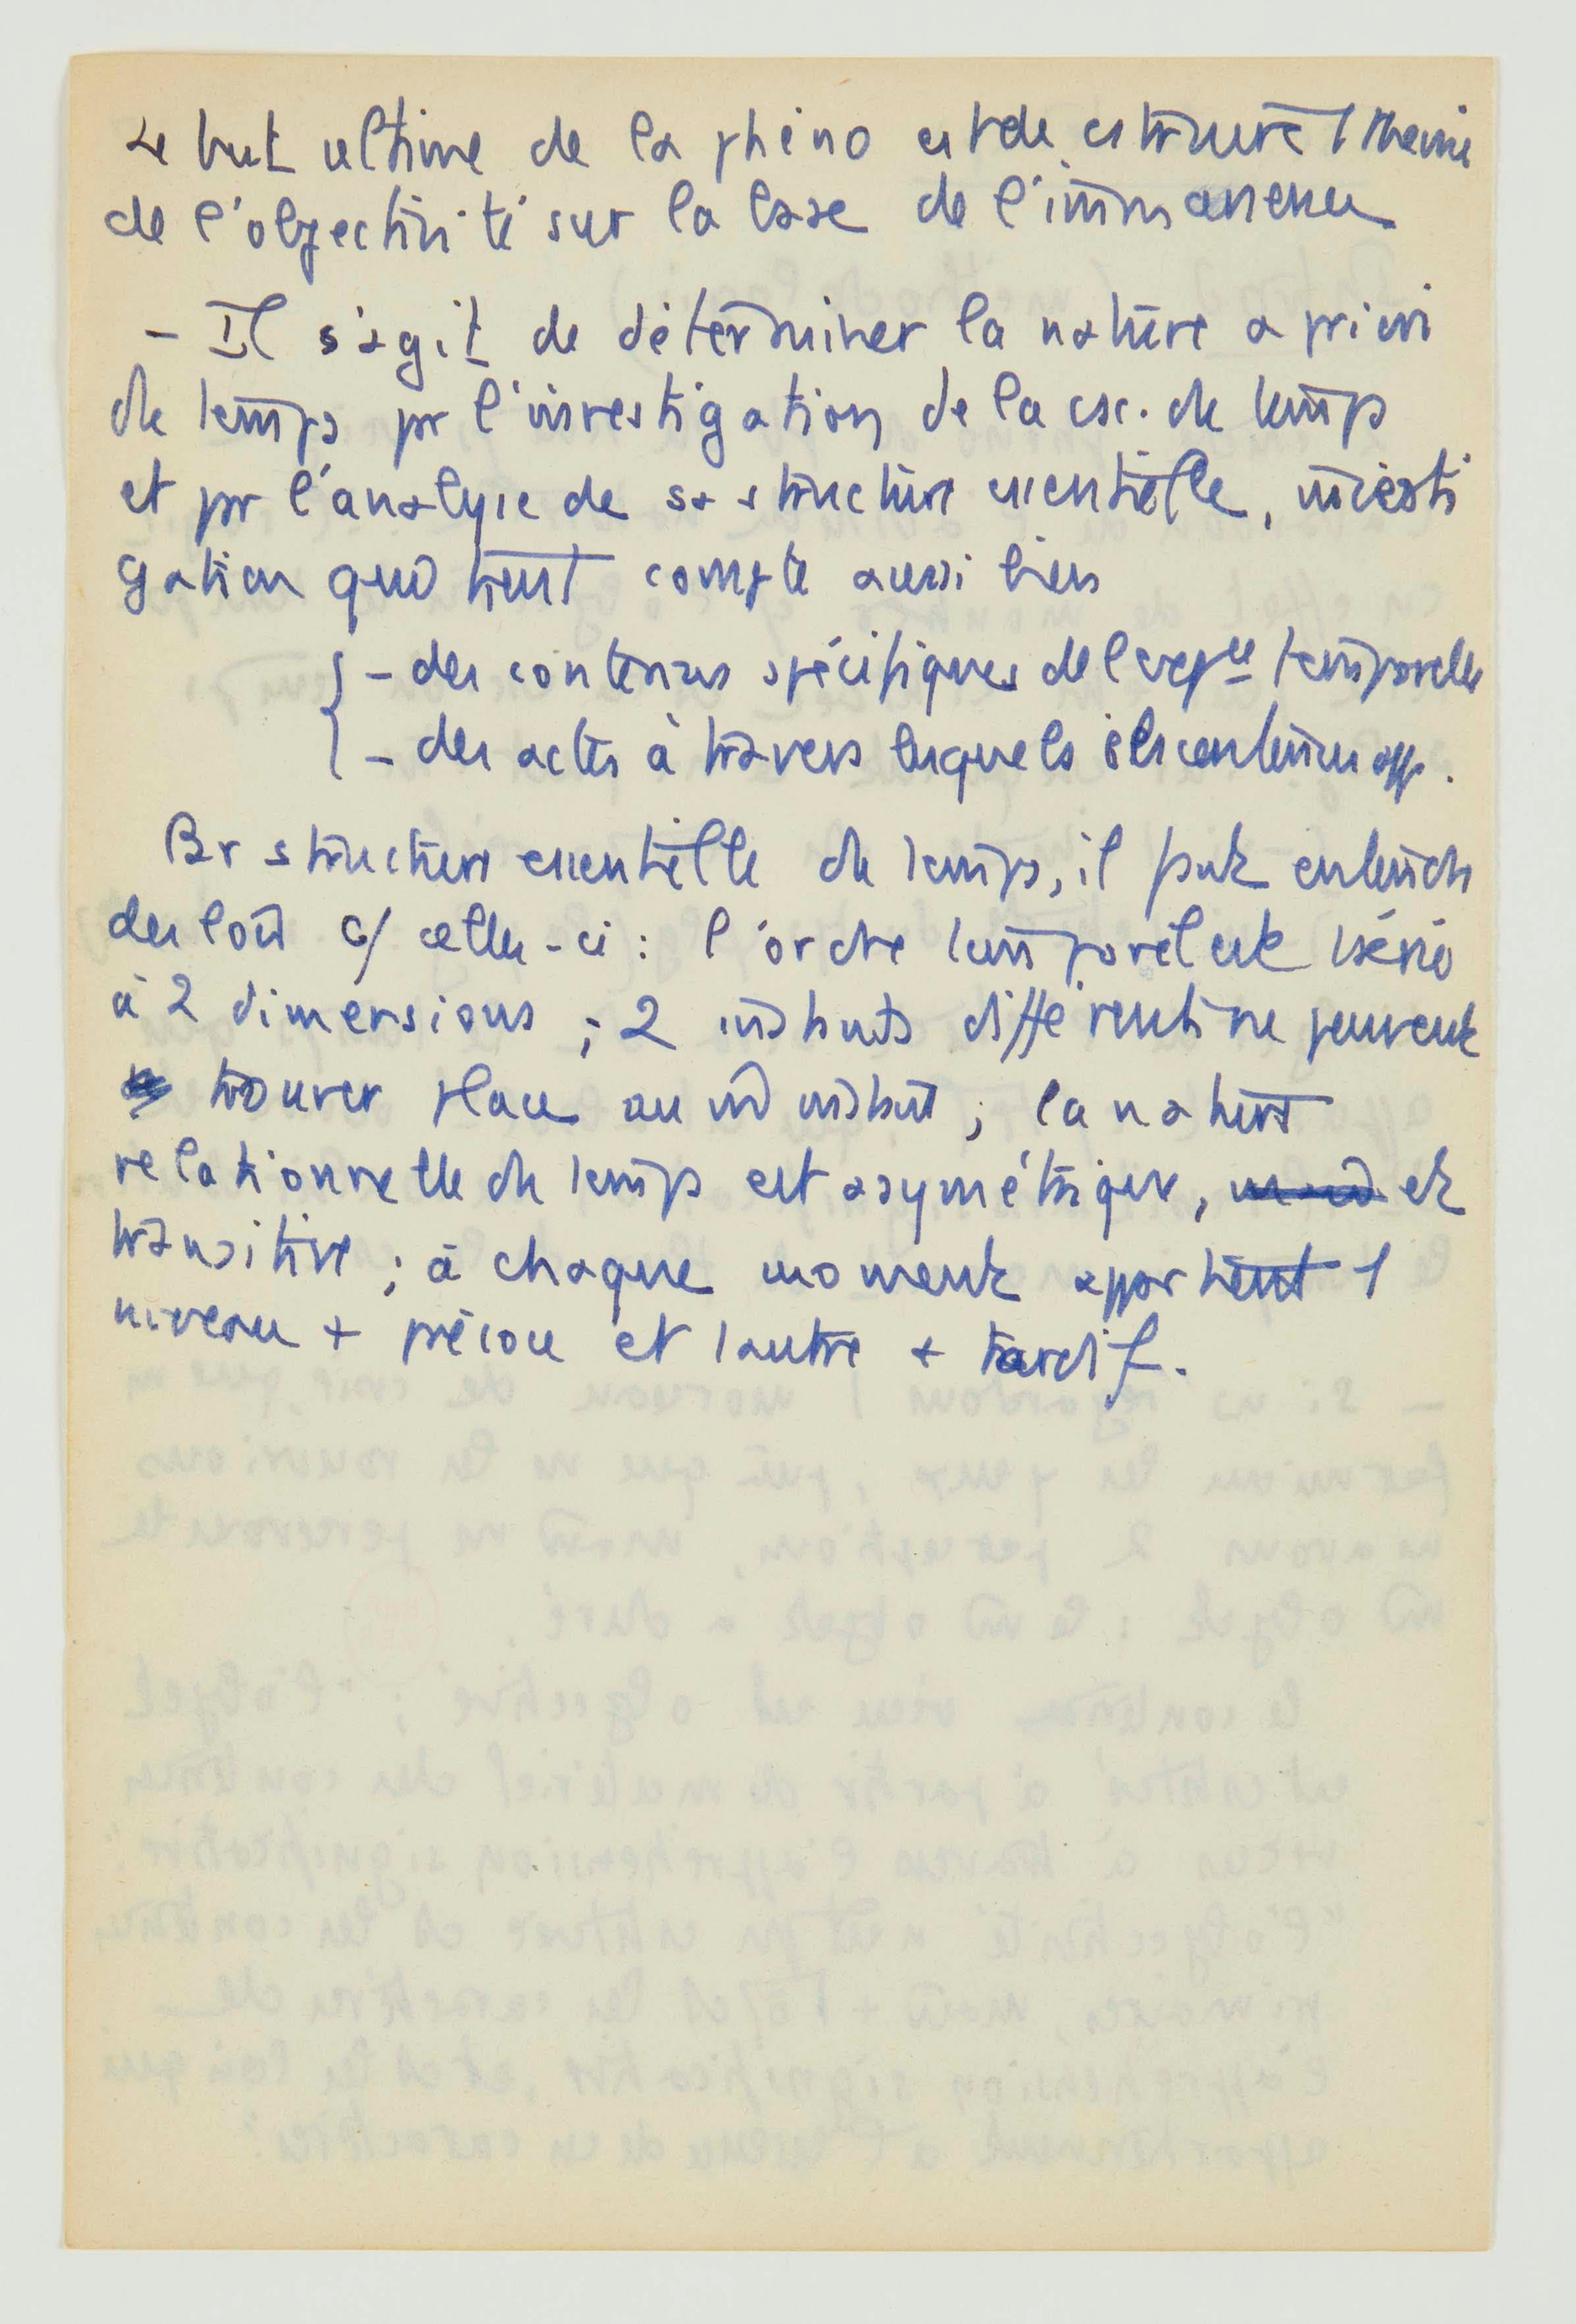 Le but ultime de la phéno est de cstruire 1 théorie
de l'objectivité sur la base de l'immanence
- Il s'agit de déterminer la nature a priori
du temps pr l'investigation de la csc. du temps
et pr l'analyse de sa structure essentielle, investi
gation qui tient compte aussi bien
- des contenus spécifiques de l'exp ce temporelle
- des actes à travers lesquels ces contenus app.
Par structure essentielle du temps, il faut entendre
des lois c/ celles-ci : l'ordre temporel est 1 série
à 2 dimensions ; 2 instants différents ne peuvent
trouver place au m̂ instant ; la nature
relationnelle du temps est asymétrique, et
transitive ; à chaque moment appartient 1
niveau + précoce et 1 autre + tardif.